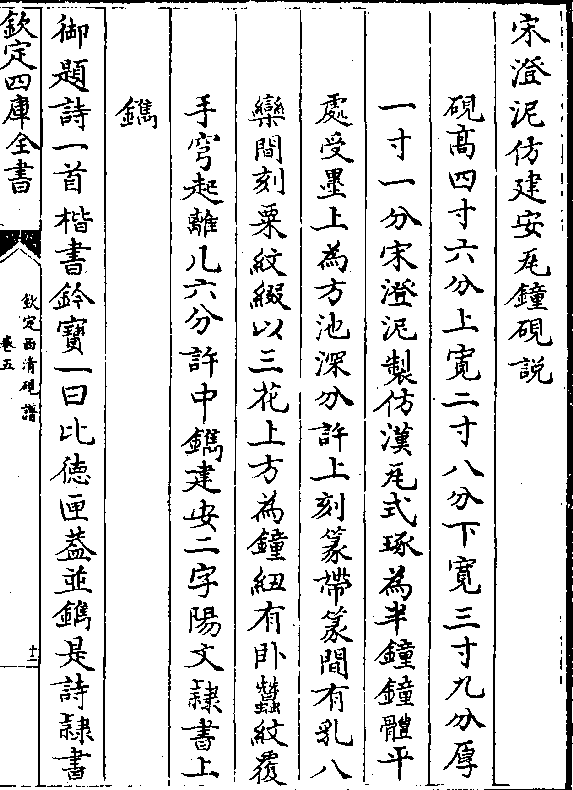 宋澄泥仿建安瓦鐘硯説
硯髙四寸六分上寛二寸八分下寛三寸九分厚
一寸一分宋澄泥製仿漢瓦式琢為半鐘鐘體平
處受墨上為方池深分許上刻篆帶篆間有乳八
欒間刻粟紋綴以三花上方為鐘紐有卧蠶紋覆
手穹起離几六分許中鐫建安二字陽文隷書上
鐫
御題詩一首楷書鈐寳一曰比徳匣葢並鐫是詩隷書
欽定四庫全書
欽定西清硯譜
卷五
十三